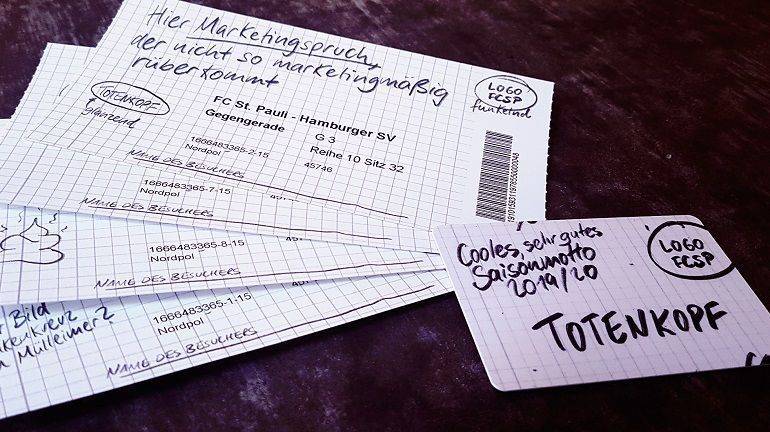 Hier Marketingspruch,
der nicht so marketingmäßig
rüberkommt
TOTENKOPF
glänzend
LOGO
FCSP
funkelnd
FC St. Pauli - Hamburger SV
Gegengerade G 3
Reihe 10 Sitz 32
1666483365-2-15
45746
Nordpol
NAME DES BESUCHERS
1666483365-7-15
Nordpol
NAME DES BESUCHERS
1666483365-8-15
Nordpol
NAME DES BESUCHERS
Bild
Mülleimer?
1666483365-1-15
Nordpol
NAME DES BESUCHERS
Cooles, sehr gutes
Saisonmotto
2019/20
LOGO
FCSP
TOTENKOPF